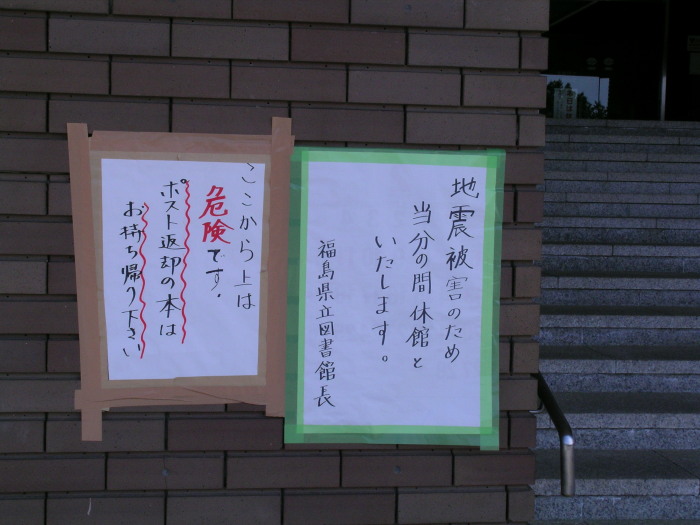 地震被害のため
当分の間休館と
いたします。
福島県立図書館長
ここから上は
危険です。
ポスト返却の本は
お持ち帰り下さい